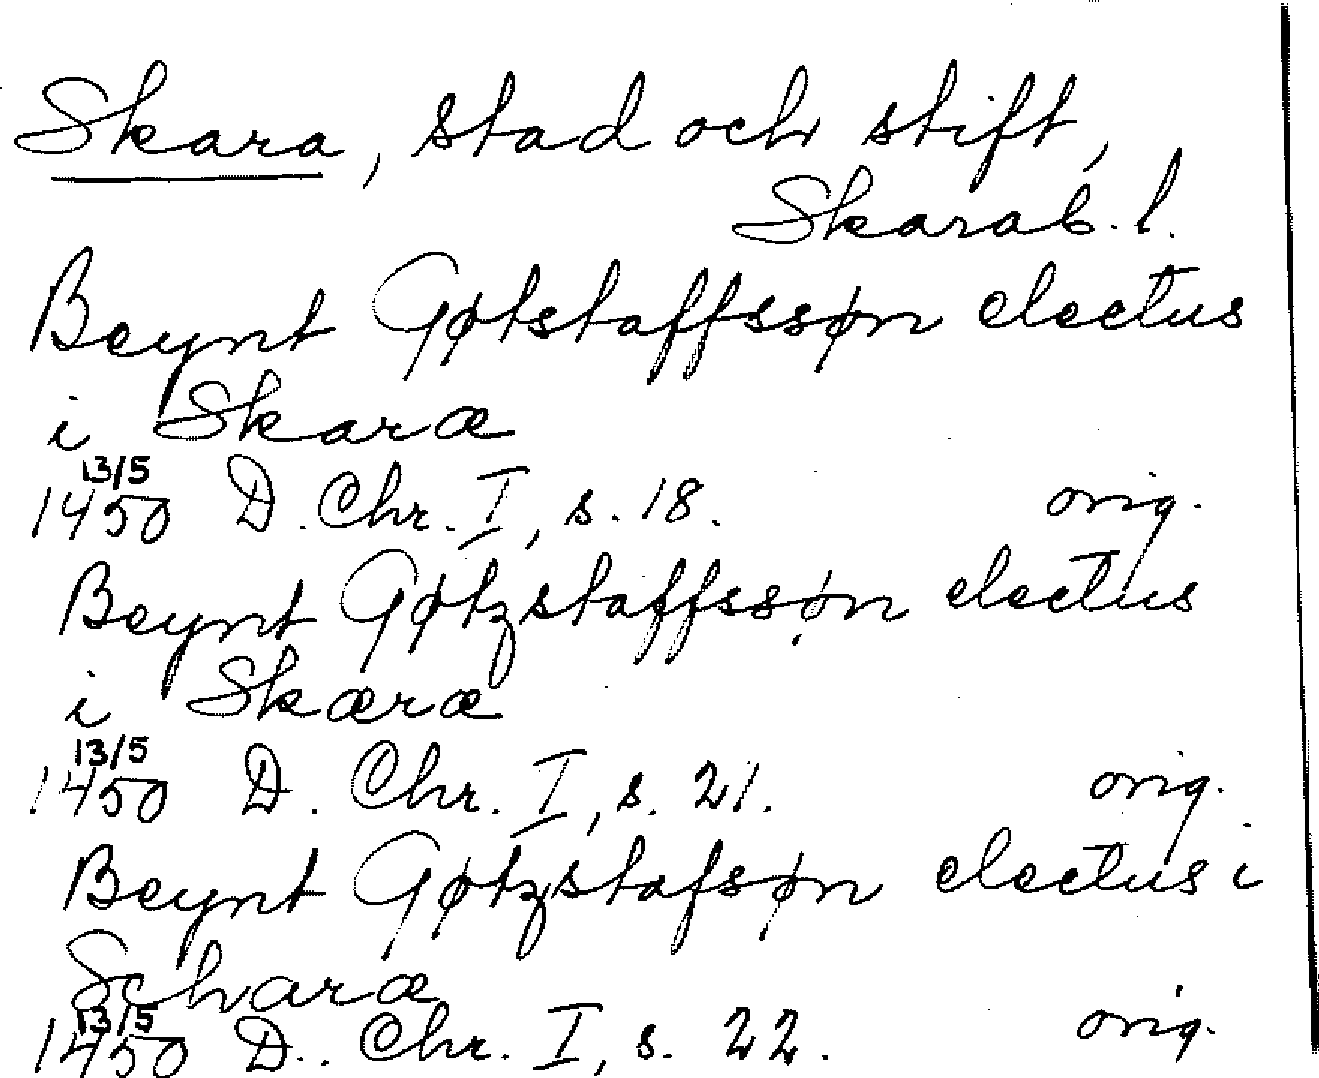 Skara, stad och stift,
Skarab. l.
Beynt Gøtstaffssøn electus
i Skaræ
13/5
1450 D. Chr. I, s. 18. orig.
Beynt Gøtzstaffssøn electus
i Skæræ
13/5
1450 D. Chr. I, s. 21. orig.
Beynt Gøtzstafsøn electus i
Scharæ
13/5
1450 D. Chr. I, s. 22. orig.